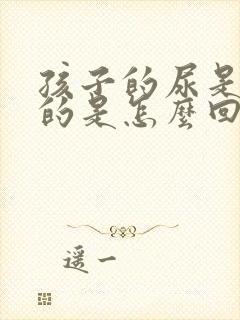 孩子的尿是
的是怎麼回
遥一